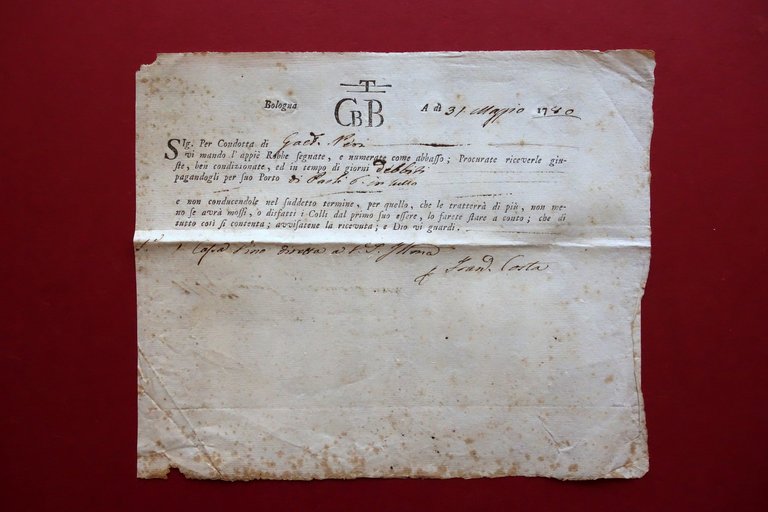 T
Bologna GBB A dì 31 Maggio 1780
SIg. Per Condotta di Gaet. Neri
vi mando l'appiè Robbe segnate, e numerate come abbasso; Procurate riceverle giu-
ste, ben condizionate, ed in tempo di giorni debbiti
pagandogli per suo Porto di Paoli 6. in tutto
e non conducendole nel suddetto termine, per quello, che le tratterrà di più, non me-
no se avrà mossi, o disfatti i Colli dal primo suo essere, lo farete stare a conto; che di
tutto così si contenta; avvisatene la ricevuta; e Dio vi guardi.
diretta a
Costa